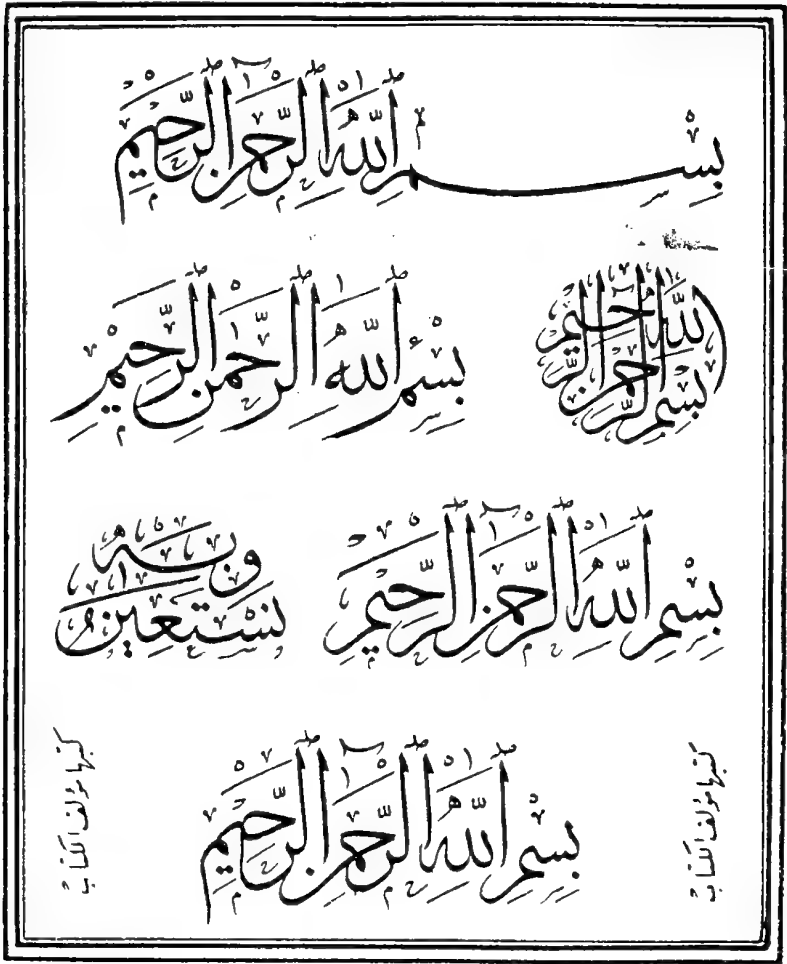 بِسْمِ اللَّهِ الرَّحْمَٰنِ الرَّحِيمِ
بِسْمِ اللَّهِ الرَّحْمَٰنِ الرَّحِيمِ
بِسْمِ اللَّهِ الرَّحْمَٰنِ الرَّحِيمِ
بِسْمِ اللَّهِ الرَّحْمَٰنِ الرَّحِيمِ
وَبِهِ نَسْتَعِينُ
بِسْمِ اللَّهِ الرَّحْمَٰنِ الرَّحِيمِ
كتبها مؤلف الكتاب
كتبها مؤلف الكتاب